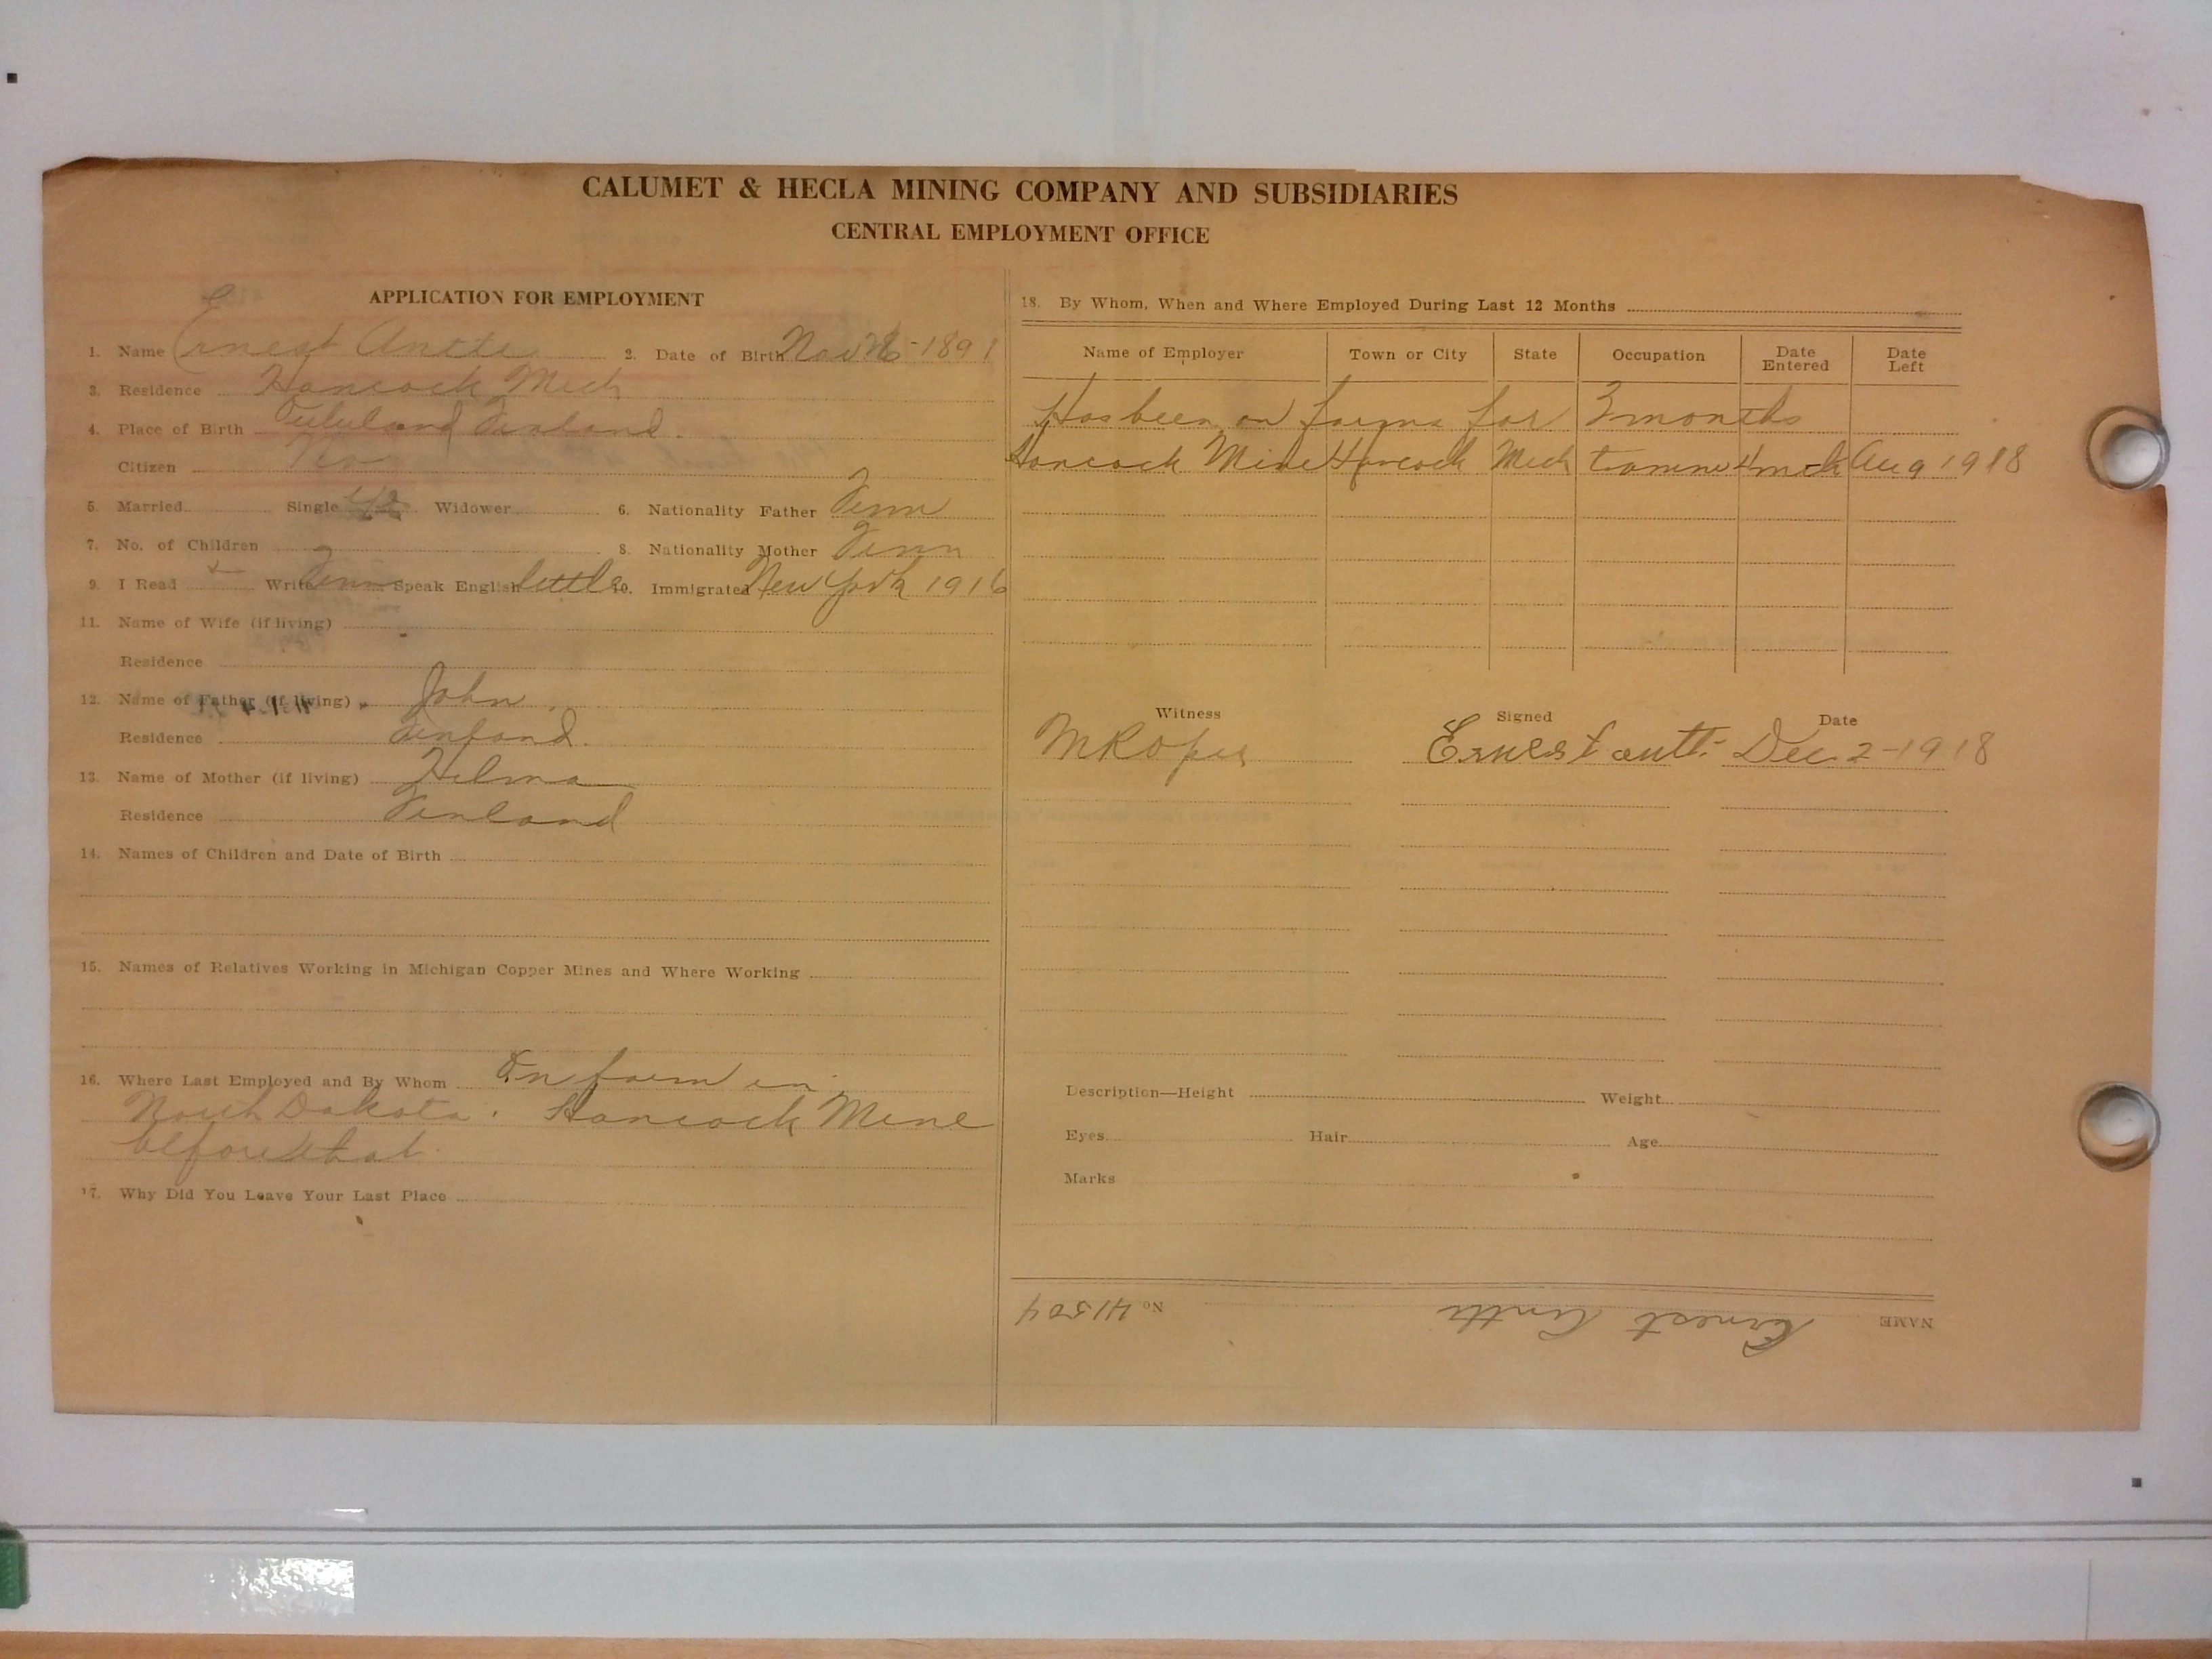 CALUMET & HECLA MINING COMPANY AND SUBSIDIARIES
CENTRAL EMPLOYMENT OFFICE
APPLICATION FOR EMPLOYMENT
1. Name Ernest Antti 2. Date of Birth Nov -1891
3. Residence Hancock Mich
4. Place of Birth Finland.
Citizen
5. Married Single Widower 6. Nationality Father Finn
7. No. of Children 8. Nationality Mother Finn
9. I Read Write Finn Speak English little 10. Immigrated New York 1916
11. Name of Wife (if living)
Residence
12. Name of Father (if living) John
Residence Finland.
13. Name of Mother (if living) Hilma
Residence Finland
14. Names of Children and Date of Birth
15. Names of Relatives Working in Michigan Copper Mines and Where Working
16. Where Last Employed and By Whom On farm in
North Dakota. Hancock Mine
before that.
17. Why Did You Leave Your Last Place
18. By Whom, When and Where Employed During Last 12 Months
Name of Employer Town or City State Occupation Date Entered Date Left
Has been on farms for 3 months
Hancock Mine Hancock Mich Aug 1918
Witness Signed Date
Ernest antti Dec 2-1918
Description—Height Weight
Eyes Hair Age
Marks
NAME Ernest Antti No 41504